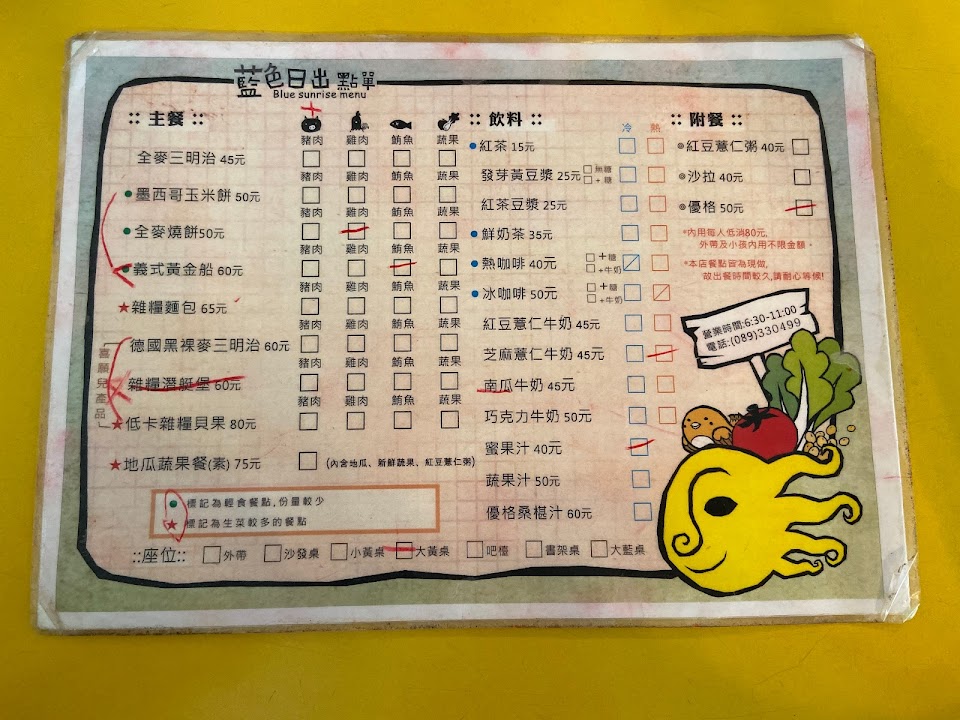 藍色日出 點單
Blue sunrise menu
:: 主餐 ::
豬肉 雞肉 鮪魚 蔬果
全麥三明治 45元
豬肉 雞肉 鮪魚 蔬果
●墨西哥玉米餅 50元
豬肉 雞肉 鮪魚 蔬果
●全麥燒餅50元
豬肉 雞肉 鮪魚 蔬果
●義式黃金船 60元
豬肉 雞肉 鮪魚 蔬果
★雜糧麵包 65元
豬肉 雞肉 鮪魚 蔬果
德國黑裸麥三明治 60元
豬肉 雞肉 鮪魚 蔬果
雜糧潛艇堡 60元
豬肉 雞肉 鮪魚 蔬果
★低卡雜糧貝果 80元
喜願兒產品
★地瓜蔬果餐(素) 75元 (內含地瓜、新鮮蔬果、紅豆薏仁粥)
● 標記為輕食餐點,份量較少
★ 標記為生菜較多的餐點
:: 飲料 ::
冷 熱
●紅茶 15元
發芽黃豆漿 25元 無糖
+糖
紅茶豆漿 25元
●鮮奶茶 35元
●熱咖啡 40元 +糖
+牛奶
●冰咖啡 50元 +糖
+牛奶
紅豆薏仁牛奶 45元
芝麻薏仁牛奶 45元
南瓜牛奶 45元
巧克力牛奶 50元
蜜果汁 40元
蔬果汁 50元
優格桑椹汁 60元
:: 附餐 ::
◎紅豆薏仁粥 40元
◎沙拉 40元
◎優格 50元
*內用每人低消80元,
外帶及小孩內用不限金額。
*本店餐點皆為現做,
故出餐時間較久,請耐心等候!
營業時間:6:30-11:00
電話:(089)330499
::座位:: 外帶 沙發桌 小黃桌 大黃桌 吧檯 書架桌 大藍桌